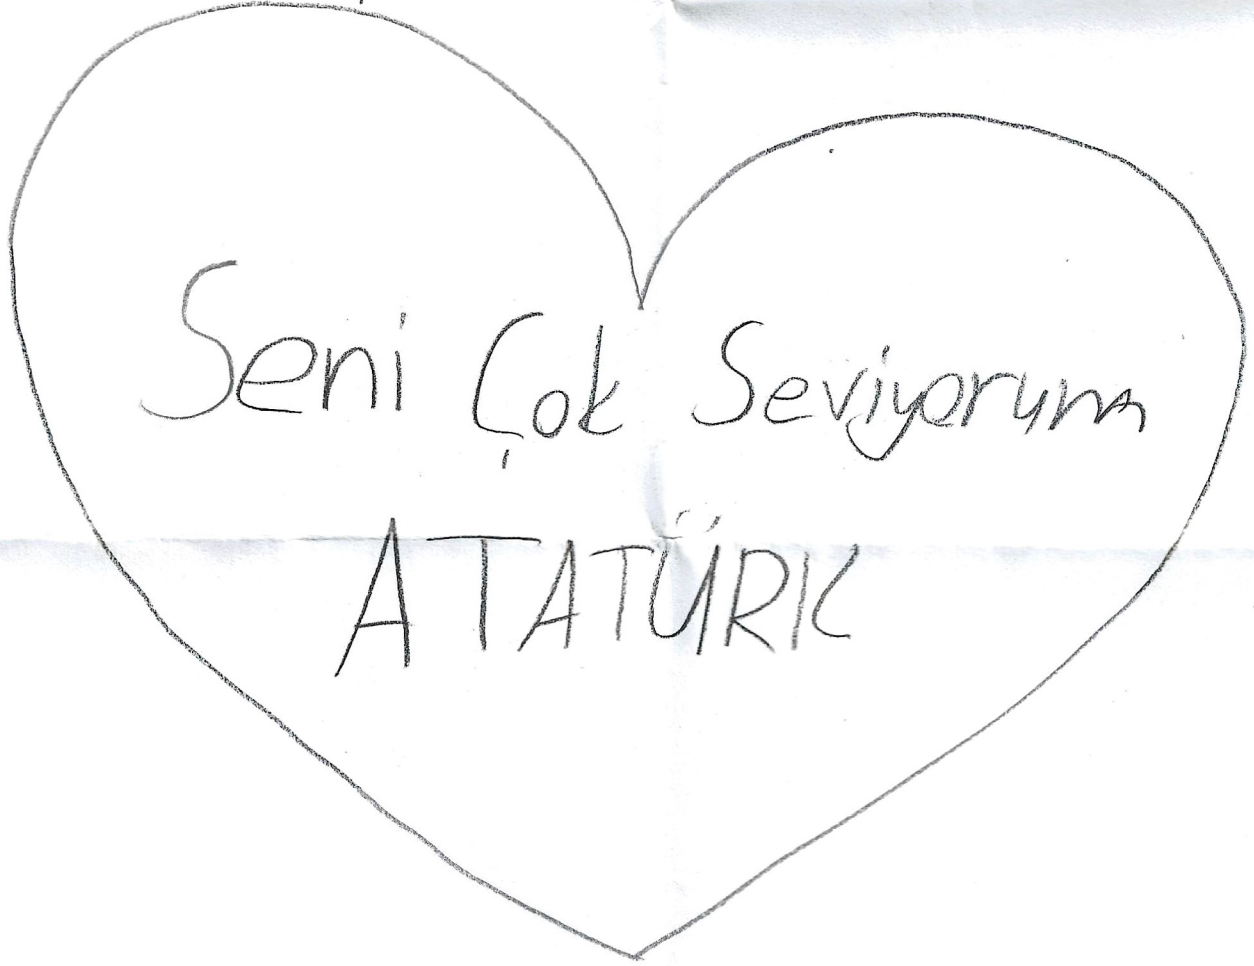 Seni Çok Seviyorum
ATATÜRK